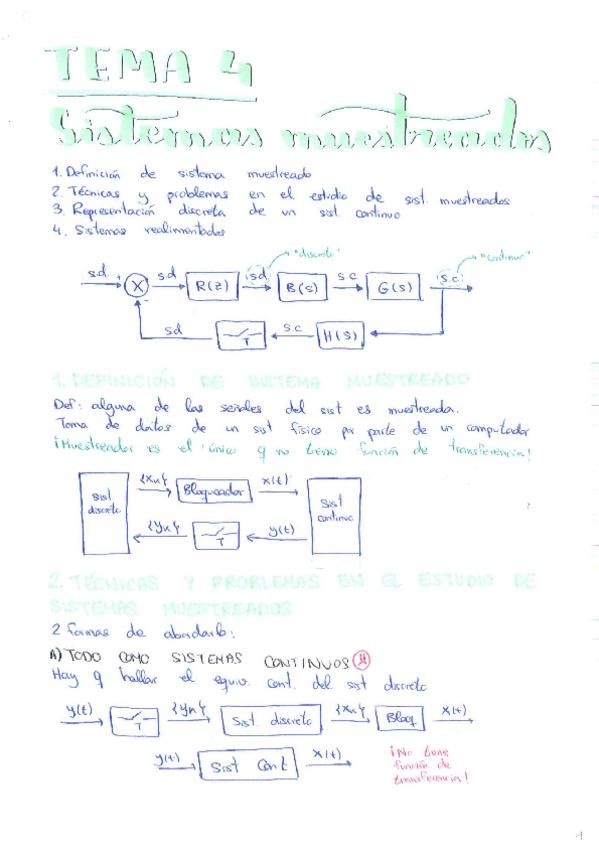 TEMA 4
Sistemas muestreados
1. Definición de sistema muestreado
2. Técnicas y problemas en el estudio de sist. muestreados
3. Representación discreta de un sist continuo
4. Sistemas realimentados
"discreto" "continuo"
s.d + s.d R(z) s.d. B(s) s.c G(s) s.c.
X
-
s.d T s.c H(s)
1. DEFINICIÓN DE SISTEMA MUESTREADO
Def: alguna de las señales del sist es muestreada.
Toma de datos de un sist físico por parte de un computador
¡Muestreador es el único q no tiene función de transferencia!
{Xn} Bloqueador x(t)
Sist discreto Sist continuo
{Yn} T y(t)
2. TÉCNICAS Y PROBLEMAS EN EL ESTUDIO DE
SISTEMAS MUESTREADOS
2 formas de abordarlo:
A) TODO COMO SISTEMAS CONTINUOS
Hay q hallar el equiv. cont. del sist discreto
y(t) T {Yn} Sist discreto {Xn} Bloq x(t)
y(t) Sist Cont x(t)
¡No tiene
función de
transferencia!
1